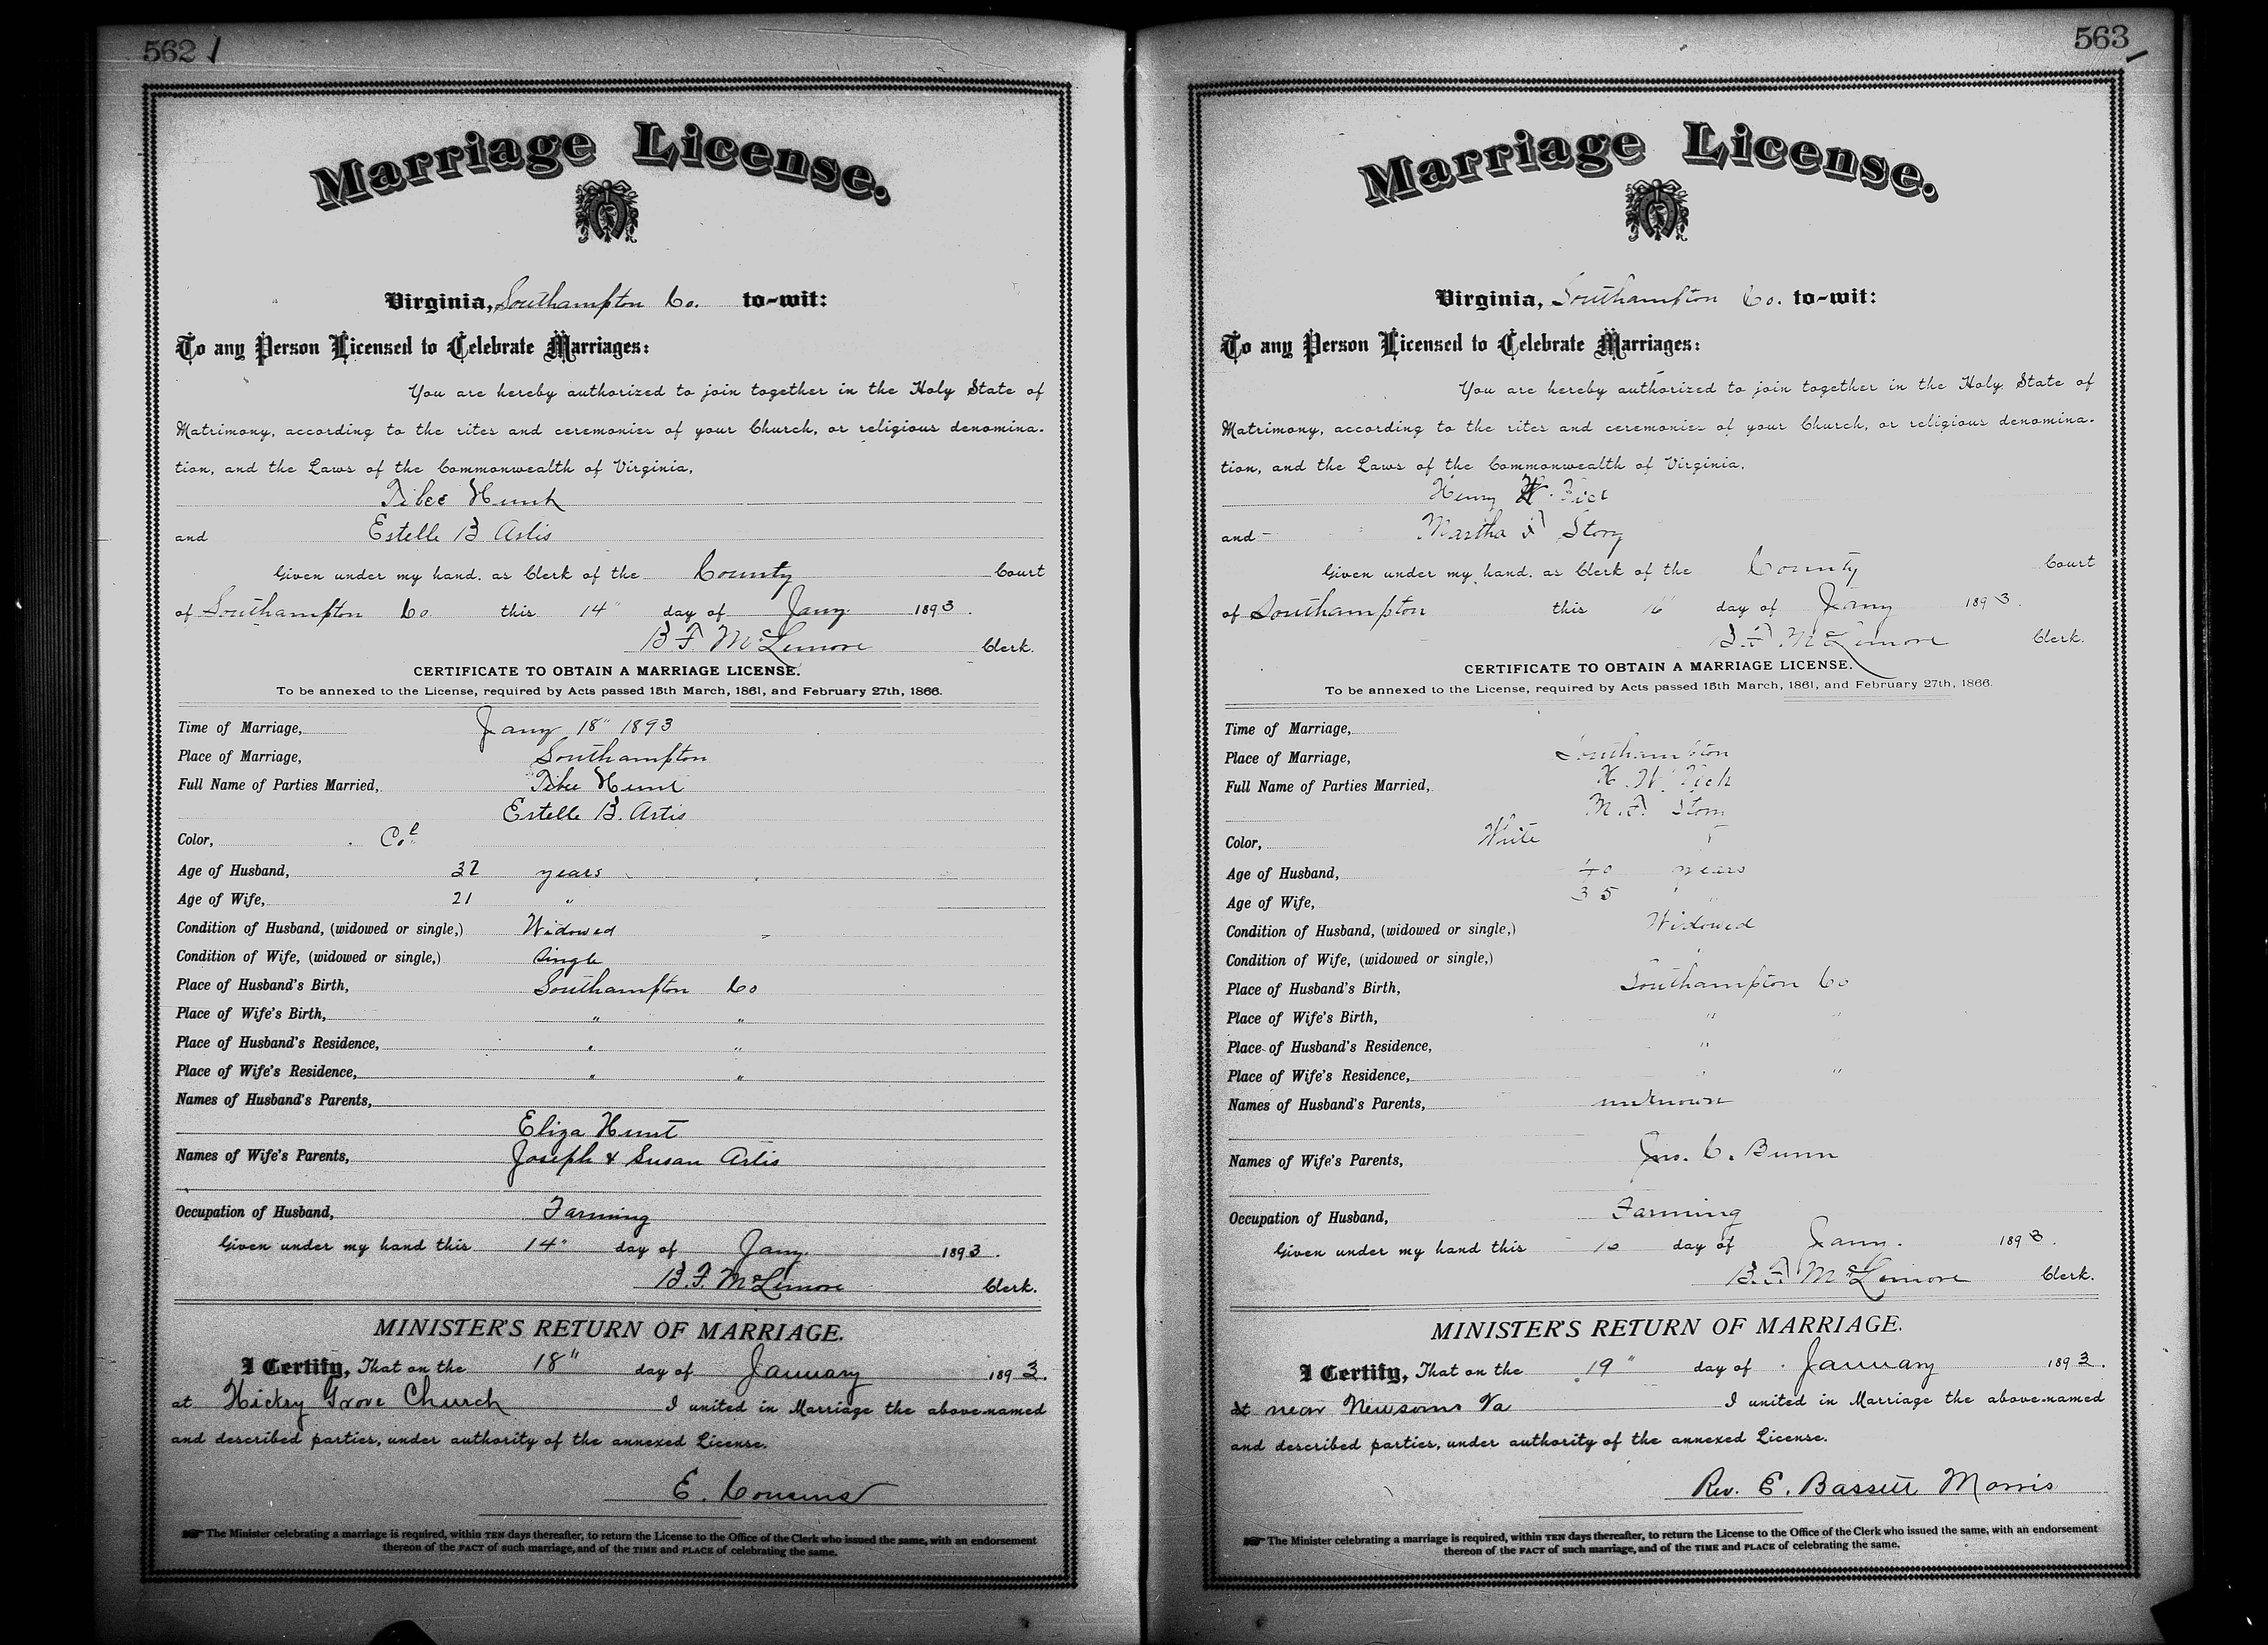 562
Marriage License.
Virginia, Southampton Co. to-wit:
To any Person Licensed to Celebrate Marriages:
You are hereby authorized to join together in the Holy State of
Matrimony, according to the rites and ceremonies of your Church, or religious denomina-
tion, and the Laws of the Commonwealth of Virginia,
Hunt
and Estelle B Artis
Given under my hand, as Clerk of the County Court
of Southampton Co this 14" day of Jany 1893.
B F McLemore Clerk.
CERTIFICATE TO OBTAIN A MARRIAGE LICENSE.
To be annexed to the License, required by Acts passed 15th March, 1861, and February 27th, 1866.
Time of Marriage, Jany 18" 1893
Place of Marriage, Southampton
Full Name of Parties Married, Hunt
Estelle B. Artis
Color, Col
Age of Husband, 32 years
Age of Wife, 21 "
Condition of Husband, (widowed or single,) Widowed
Condition of Wife, (widowed or single,) Single
Place of Husband's Birth, Southampton Co
Place of Wife's Birth, " "
Place of Husband's Residence, " "
Place of Wife's Residence, " "
Names of Husband's Parents,
Eliza Hunt
Names of Wife's Parents, Joseph & Susan Artis
Occupation of Husband, Farming
Given under my hand this 14" day of Jany. 1893.
B. F. McLemore Clerk.
MINISTER'S RETURN OF MARRIAGE.
I Certify, That on the 18" day of January 1893.
at Hickry Grove Church I united in Marriage the above-named
and described parties, under authority of the annexed License.
E. Cousins
The Minister celebrating a marriage is required, within TEN days thereafter, to return the License to the Office of the Clerk who issued the same, with an endorsement
thereon of the FACT of such marriage, and of the TIME and PLACE of celebrating the same.
563
Marriage License.
Virginia, Southampton Co. to-wit:
To any Person Licensed to Celebrate Marriages:
You are hereby authorized to join together in the Holy State of
Matrimony, according to the rites and ceremonies of your Church, or religious denomina-
tion, and the Laws of the Commonwealth of Virginia.
Henry W.
and Martha F Story
Given under my hand, as Clerk of the County Court
of Southampton this 16" day of Jany 1893.
B. F. McLemore Clerk.
CERTIFICATE TO OBTAIN A MARRIAGE LICENSE.
To be annexed to the License, required by Acts passed 15th March, 1861, and February 27th, 1866.
Time of Marriage,
Place of Marriage, Southampton
Full Name of Parties Married, H. W.
M. F. Story
Color, White
Age of Husband, 40 years
Age of Wife, 35 "
Condition of Husband, (widowed or single,) Widowed
Condition of Wife, (widowed or single,)
Place of Husband's Birth, Southampton Co
Place of Wife's Birth, " "
Place of Husband's Residence, "
Place of Wife's Residence, " "
Names of Husband's Parents, unknown
Names of Wife's Parents, Jno. C. Bunn
Occupation of Husband, Farming
Given under my hand this day of Jany. 1893.
B. F. McLemore Clerk.
MINISTER'S RETURN OF MARRIAGE.
I Certify, That on the 19" day of January 1893.
at near Newsoms Va I united in Marriage the above-named
and described parties, under authority of the annexed License.
Rev. E. Bassett Morris
The Minister celebrating a marriage is required, within TEN days thereafter, to return the License to the Office of the Clerk who issued the same, with an endorsement
thereon of the FACT of such marriage, and of the TIME and PLACE of celebrating the same.